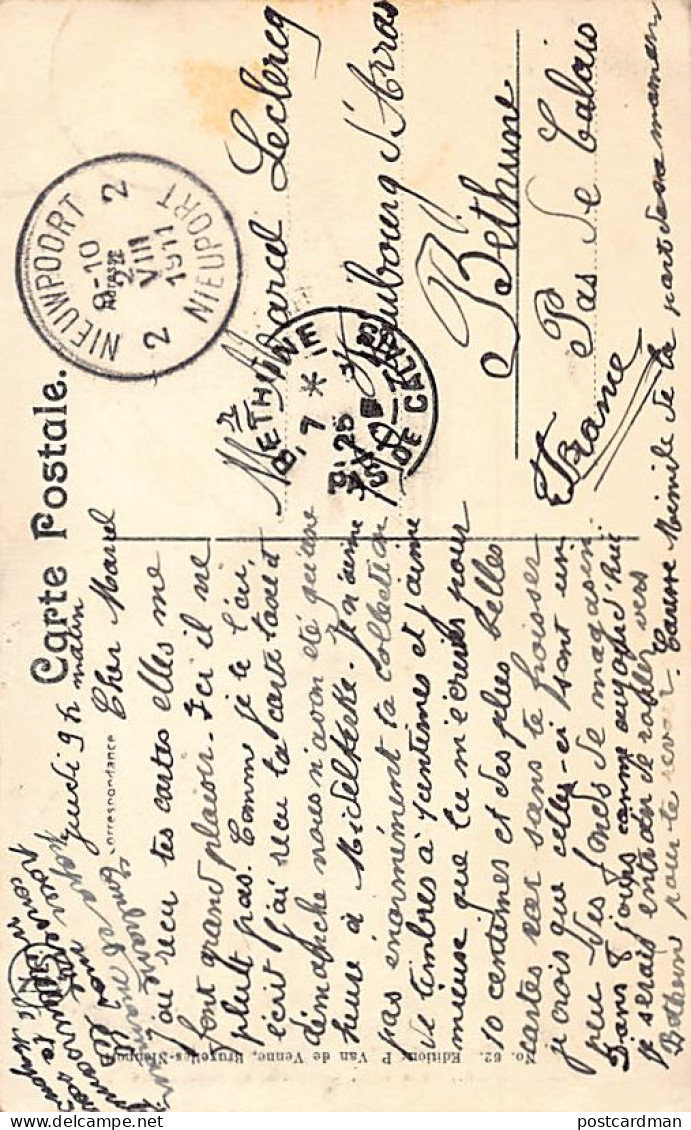 Carte Postale.
Correspondance
NIEUWPOORT 2
9-10
2
VIII
1911
2 NIEUPORT
BETHUNE
7 *
25
PAS DE CALAIS
Mr Marcel Leclercq
Faubourg d'Arras
Béthune
Pas de Calais
France
Jeudi 9 h
matin
Cher Marcel
j'ai recu tes cartes elles me
font grand plaisir. Ici il ne
pleut pas. Comme je te l'ai
écrit j'ai recu ta carte taxée et
dimanche nous n'avon été qu'une
heure à Midelkerke. Je n'aime
pas enormément ta collection
de timbres à 5 centimes et j'aime
mieuse que tu m'écrives pour
10 centimes et des plus belles
cartes car sans te froisser
je crois que celles-ci sont un
peu des fonds de magasin.
Dans 8 jours comme aujourd'hui
je serais entrain de rouler vers
Bethune pour te revoir. Caresse Mimile de la part de sa maman
No. 62. Edition: P. Van de Venne, Bruxelles-Nieuport
postcardman